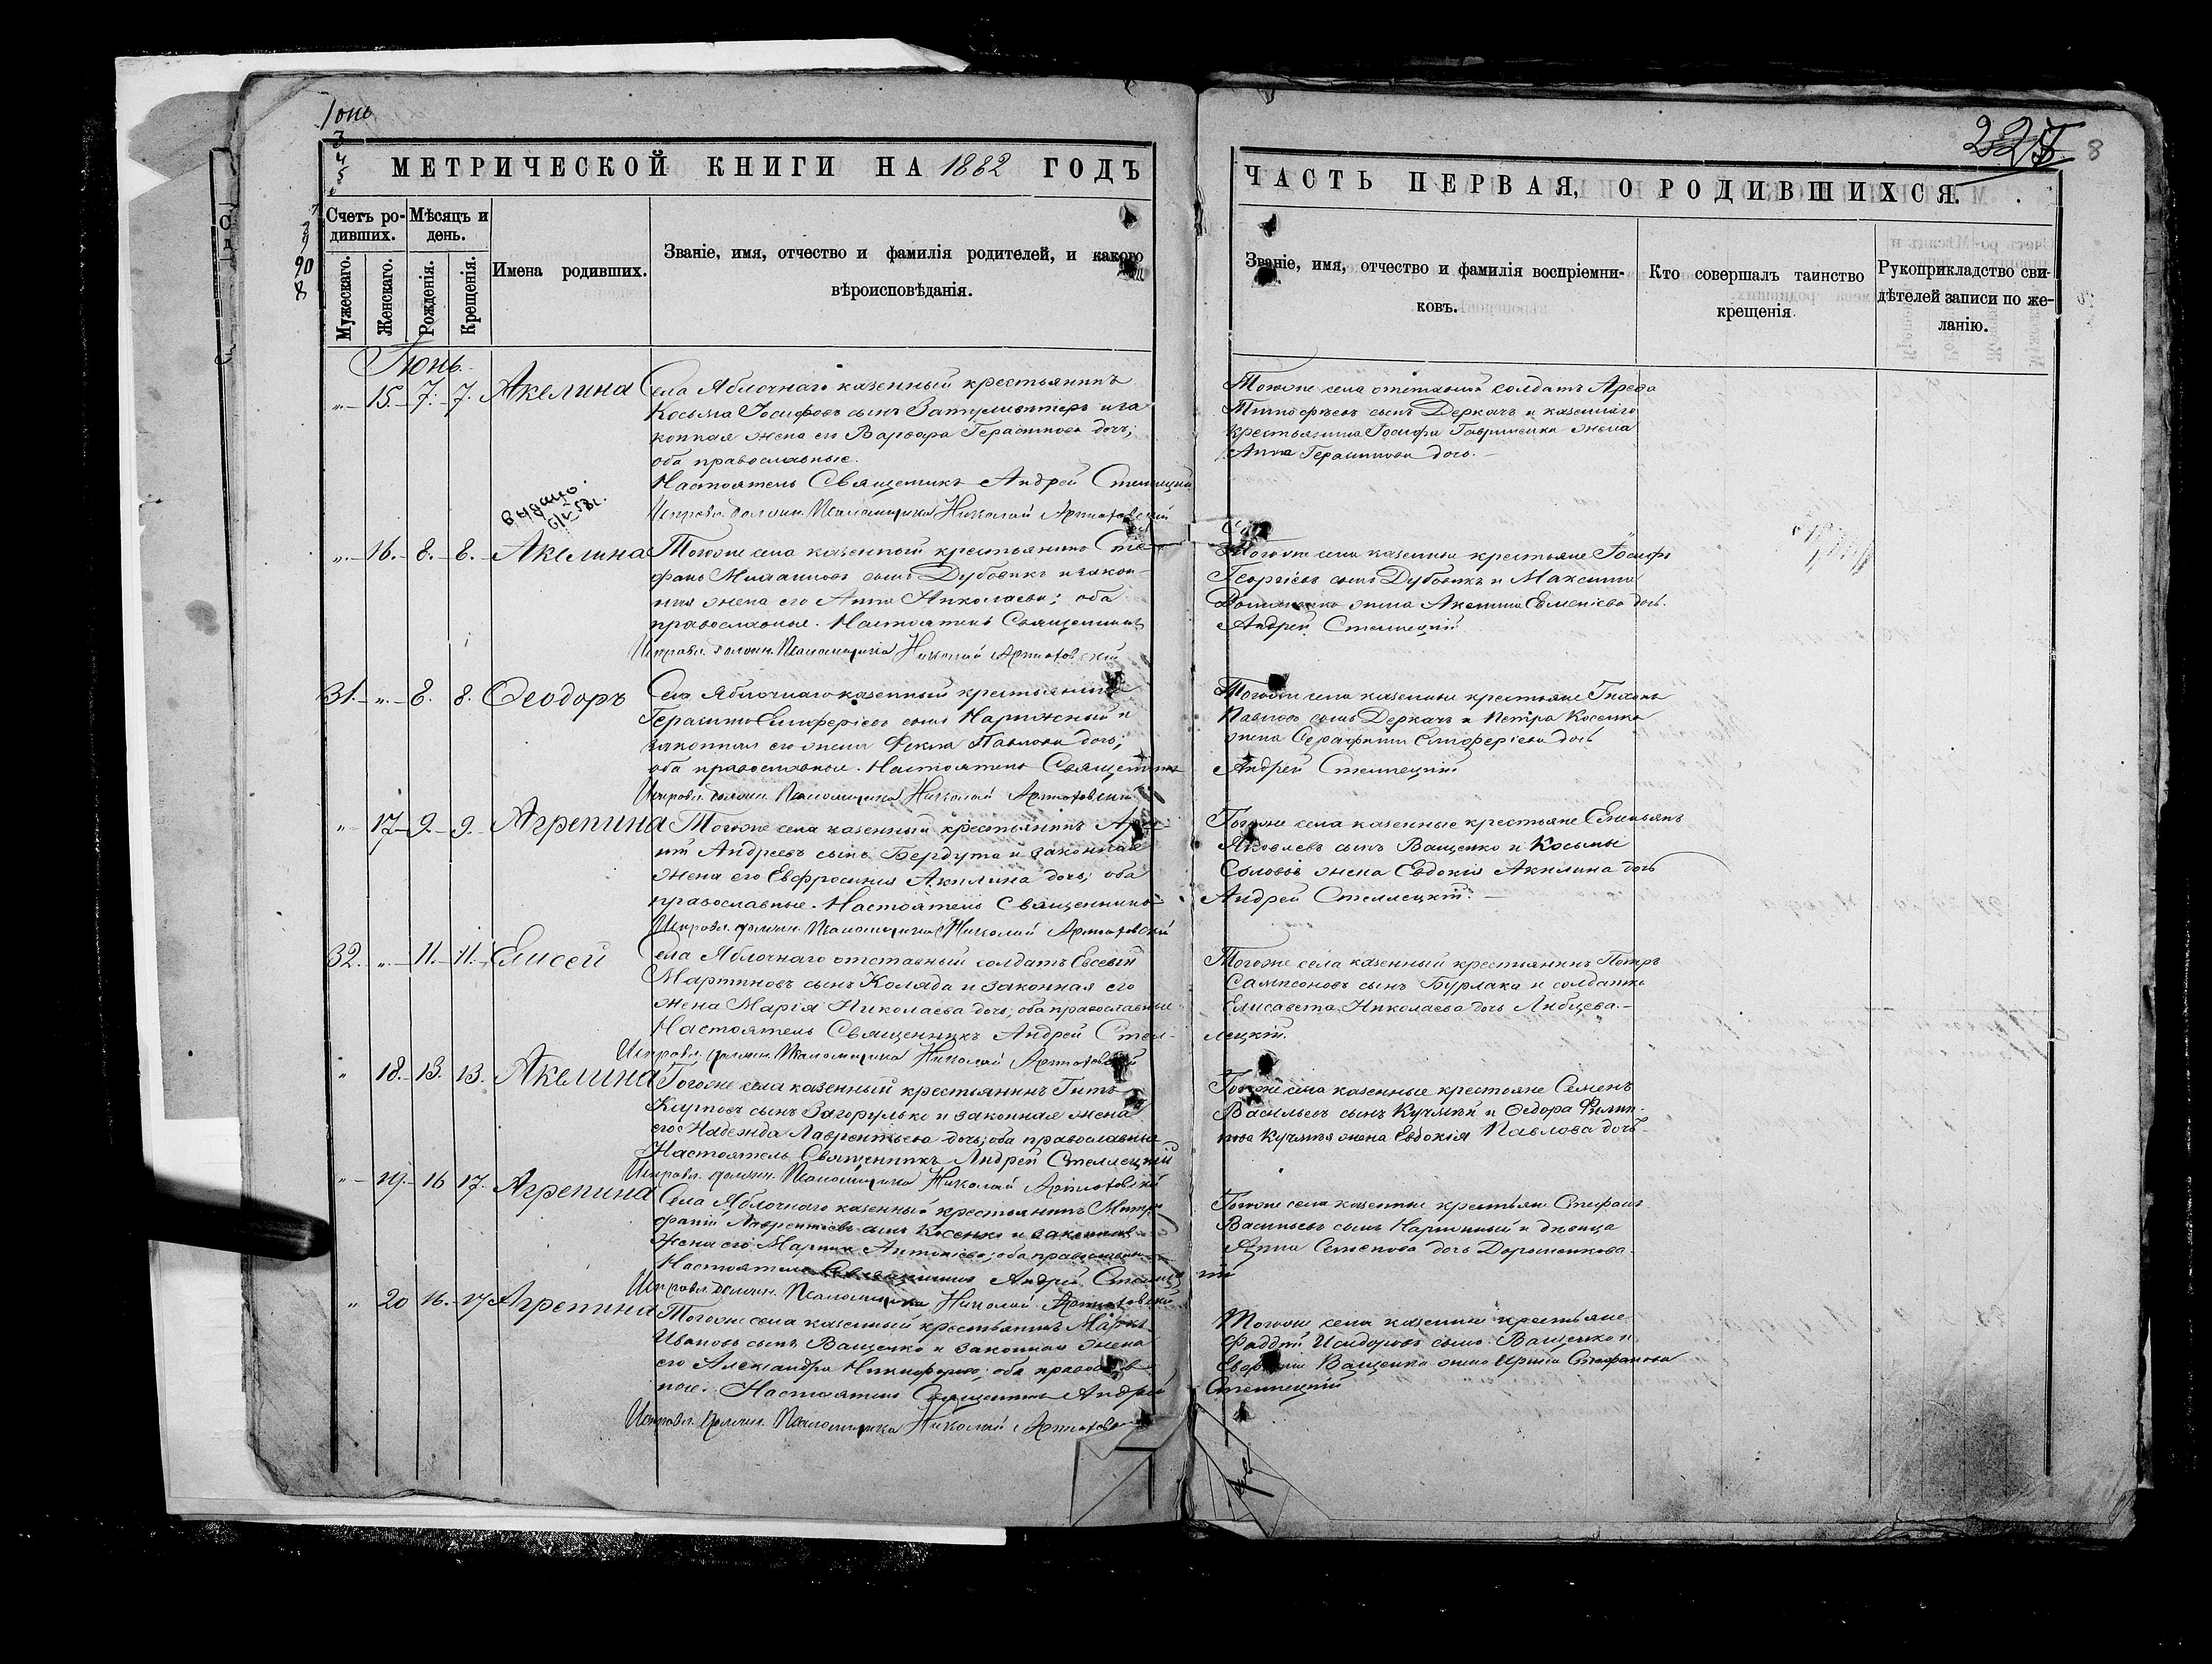 Юнь
МЕТРИЧЕСКОЙ КНИГИ НА 1882 ГОДЪ
Счетъ ро-
дившихъ.
Мѣсяцъ и
день.
Мужескаго.
Женскаго.
Рожденія.
Крещенія.
Имена родивших.
Званіе, имя, отчество и фамилія родителей, и какого
вѣроисповѣданія.
Іюнь.
„ 15. 7. 7. Акелина Села Яблочнаго казенный крестьянинъ
Косьма Іосифовъ сынъ и за
конная жена его Варвара Герасимова дочь;
оба православные.
Настоятель Священникъ Андрей Стеллецкій
Исправл. должн. Псаломщика Николай Артиховскій
выдано.
„ 16. 8. 8. Акелина Тогоже села казенный крестьянинъ Сте
фанъ сынъ Дубовикъ и закон-
ная жена его Анна Николаева; оба
православные. Настоятель Священникъ
Исправл. должн. Псаломщика Николай Артиховскій
31. „ 8. 8. Ѳеодоръ Села Яблочнаго казенный крестьянинъ
Герасимъ Елиферіевъ сынъ Нарижный и
законная его жена Фекла Павлова дочь;
оба православные. Настоятель Священникъ
Исправл. должн. Псаломщика Николай Артиховскій
„ 17. 9. 9. Агрепина Тогоже села казенный крестьянинъ
Андреевъ сынъ Бердута и законная
жена его Евфросинія Акилина дочь; оба
православные. Настоятель Священникъ
Исправл. должн. Псаломщика Николай Артиховскій
32. „ 11. 11. Елисей Села Яблочнаго отставный солдатъ Евсевій
Мартиновъ сынъ Коляда и законная его
жена Марія Николаева дочь; оба православные
Настоятель Священникъ Андрей Стел-
Исправл. должн. Псаломщика Николай Артиховскій
„ 18. 13. 13. Акелина Тогоже села казенный крестьянинъ Титъ
Карповъ сынъ Загорулько и законная жена
его Надежда Лаврентьева дочь; оба православные
Настоятель Священникъ Андрей Стеллецкій
Исправл. должн. Псаломщика Николай Артиховскій
„ 19. 16 17. Агрепина Села Яблочнаго казенный крестьянинъ Митро
фаній Лаврентіевъ сынъ Косенко и законная
жена его Марина Антоніева; оба православные
Настоятель Священникъ Андрей Стеллец
Исправл. должн. Псаломщика Николай Артиховскій
„ 20 16. 17 Агрепина Тогоже села казенный крестьянинъ Маркъ
Ивановъ сынъ Ващенко и законная жена
его Александра Никифорова; оба православ
ные. Настоятель Священникъ Андрей
Исправл. должн. Псаломщика Николай Артиховскій
8
ЧАСТЬ ПЕРВАЯ, О РОДИВШИХСЯ.
Званіе, имя, отчество и фамилія воспріемни-
ковъ.
Кто совершалъ таинство
крещенія.
Рукоприкладство сви-
дѣтелей записи по же-
ланію.
Тогоже села отставный солдатъ Арефа
Тимофѣевъ сынъ Деркачъ и казеннаго
крестьянина Іосифа Гавриленка жена
Анна Герасимова дочь.
Тогоже села казенные крестьяне Іосифъ
Георгіевъ сынъ Дубовикъ и Максима
жена Акелина Евменіева дочь.
Андрей Стеллецкій
Тогоже села казенные крестьяне Тихонъ
Павловъ сынъ Деркачъ и Петра Косенка
жена Серафима Елиферіева дочь
Андрей Стеллецкій
Тогоже села казенные крестьяне Емельянъ
Яковлевъ сынъ Ващенко и Косьмы
Соловья жена Евдокія Акилина дочь
Андрей Стеллецкій.
Тогоже села казенный крестьянинъ Петръ
Сампсоновъ сынъ Бурлака и солдатка
Елисавета Николаева дочь
лецкій.
Тогоже села казенные крестьяне Семенъ
Васильевъ сынъ и Ѳедора Филип-
пова жена Евдокія Павлова дочь
Тогоже села казенные крестьяне Стефанъ
Васильевъ сынъ Нарижный и дѣвица
Анна Семенова дочь Дорошенкова
кій
Тогоже села казенные крестьяне
Фаддей Исидоровъ сынъ Ващенко и
Ващенко жена Ирина Стефанова
Стеллецкій